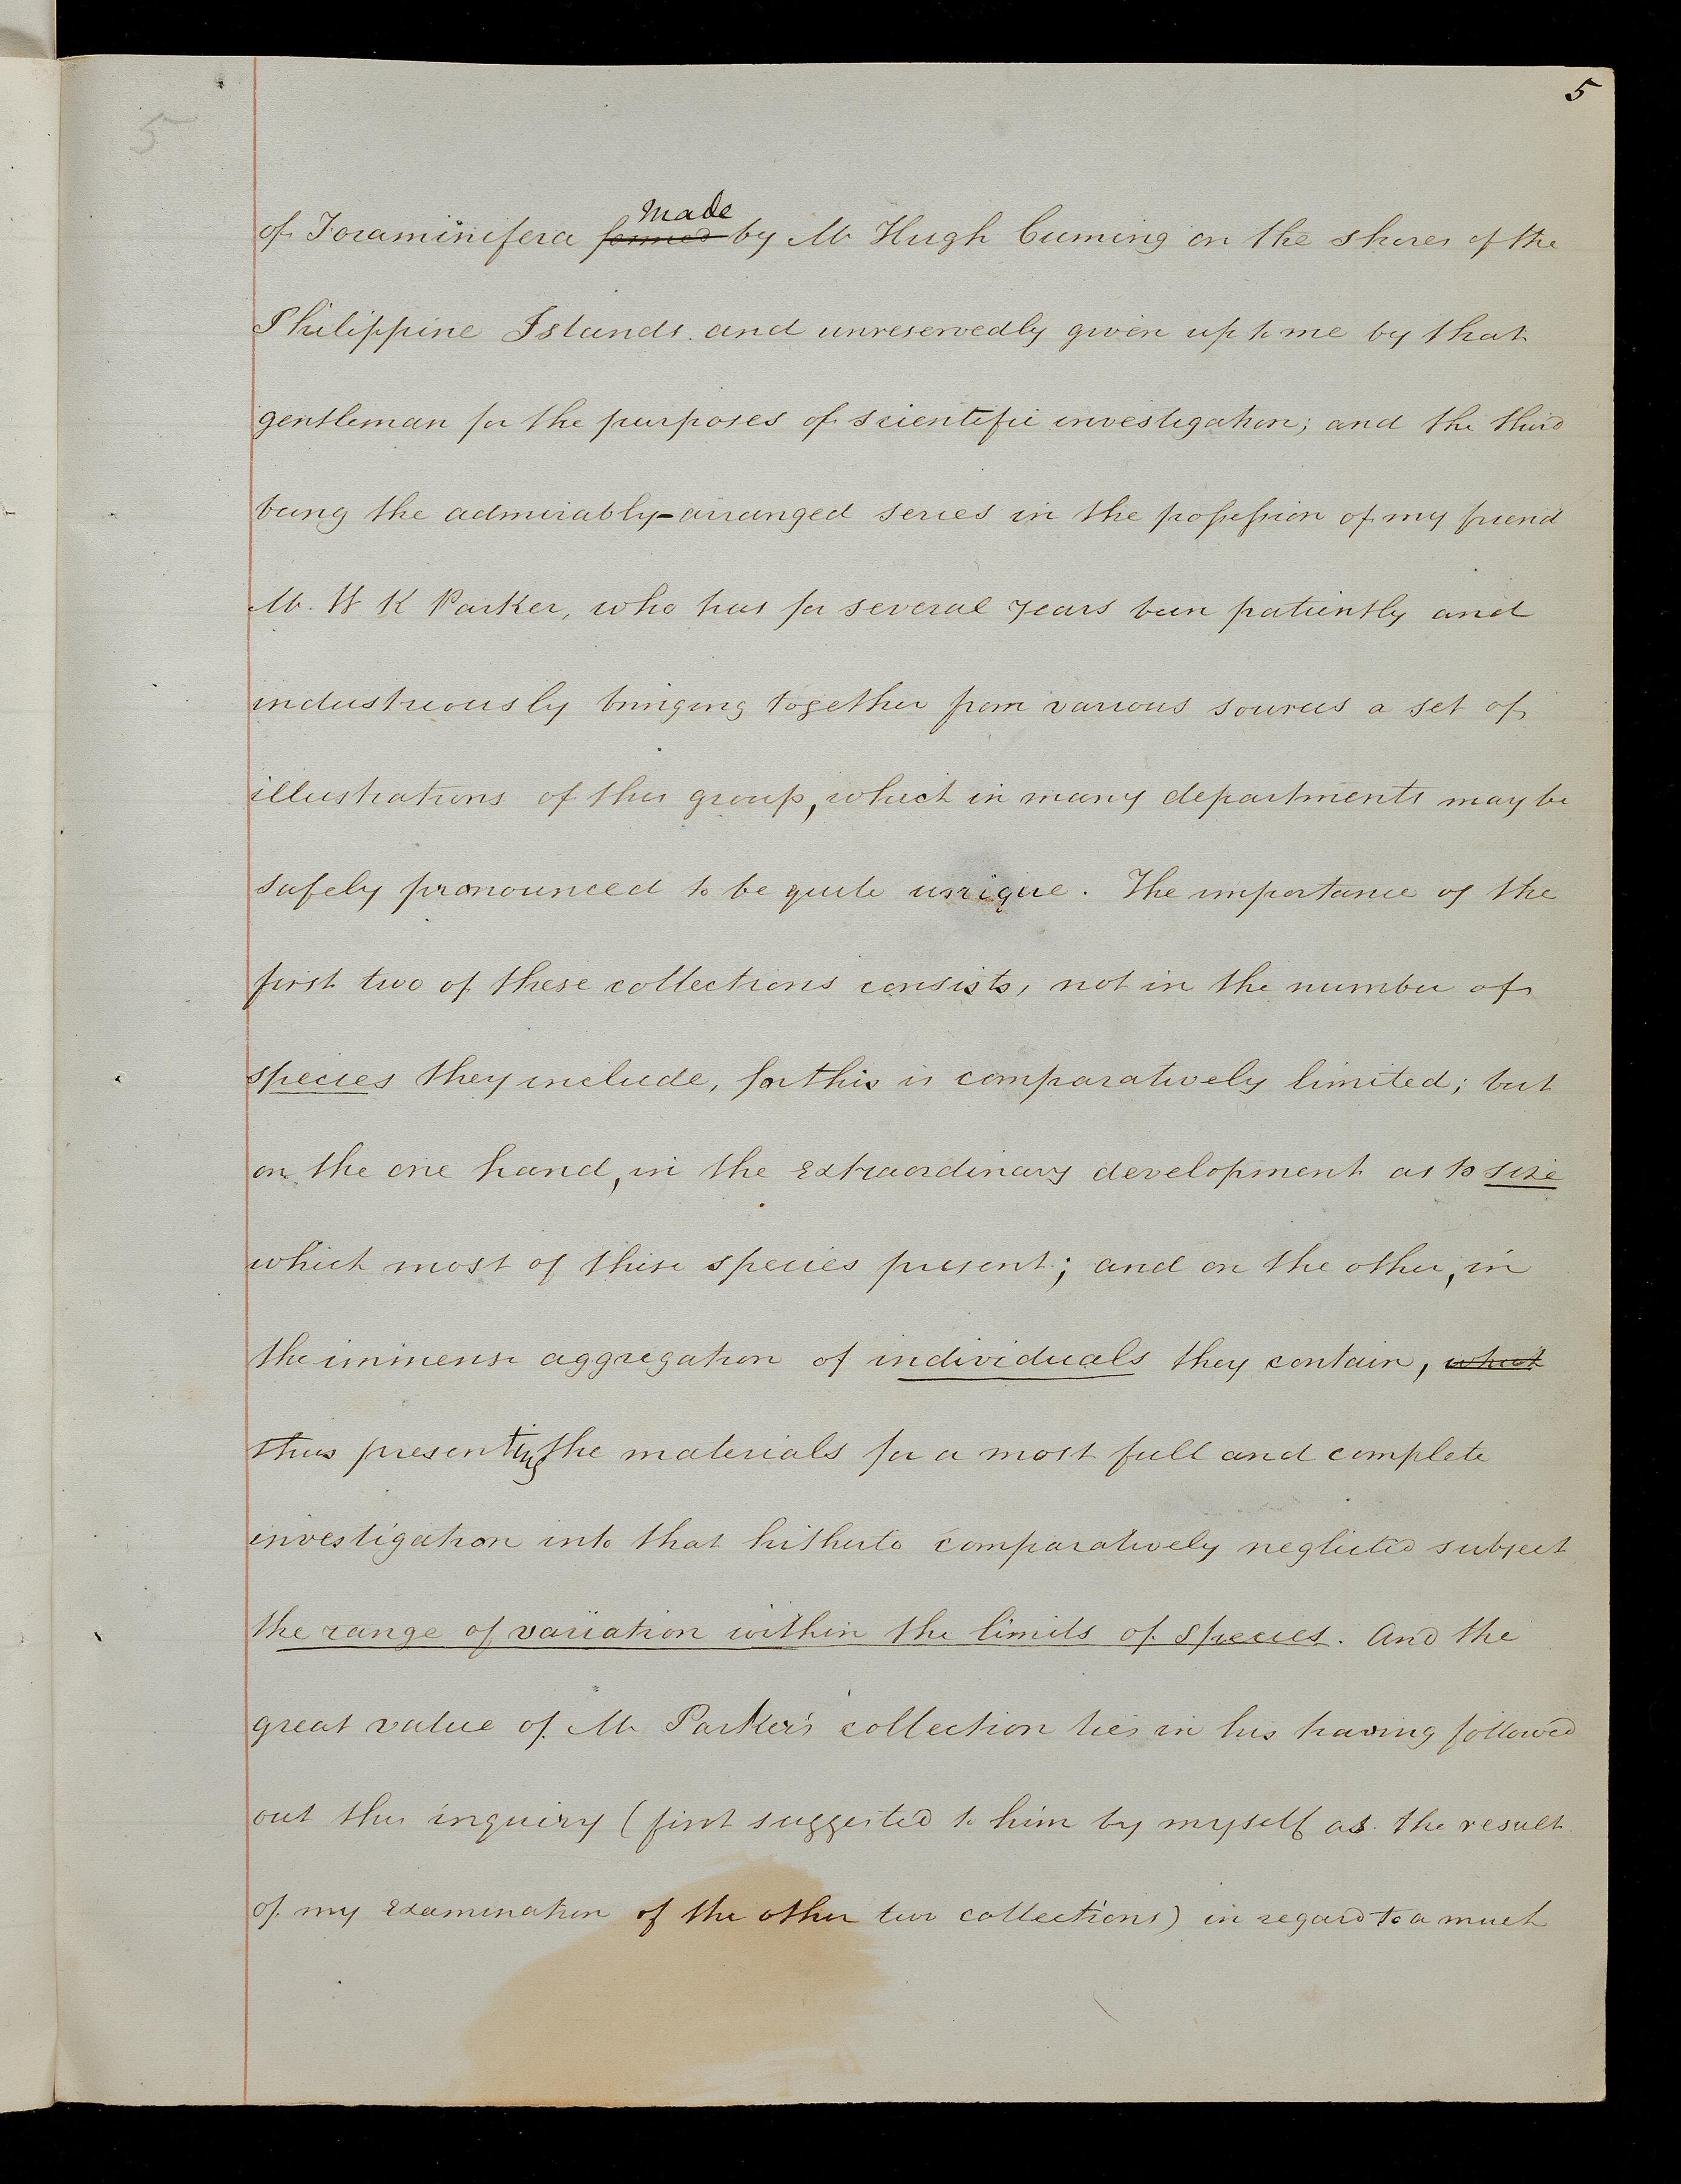 5
5
made
of Foraminifera formed by Mr Hugh Cuming on the shores of the
Philippine Islands and unreservedly given up to me by that
gentleman for the purposes of scientific investigation; and the third
being the admirably-arranged series in the possession of my friend
Mr. W K Parker, who has for several years been patiently and
industriously bringing together from various sources a set of
illustrations of this group, which in many departments may be
safely pronounced to be quite unique. The importance of the
first two of these collections consists, not in the number of
species they include, for this is comparatively limited; but
on the one hand, in the extraordinary development as to size
which most of these species present; and on the other, in
the immense aggregation of individuals they contain, which
thus presenting the materials for a most full and complete
investigation into that hitherto comparatively neglected subject
the range of variation within the limits of species. And the
great value of Mr Parker's collection lies in his having followed
out this inquiry (first suggested to him by myself as the result
of my examination of the other two collections) in regard to a much